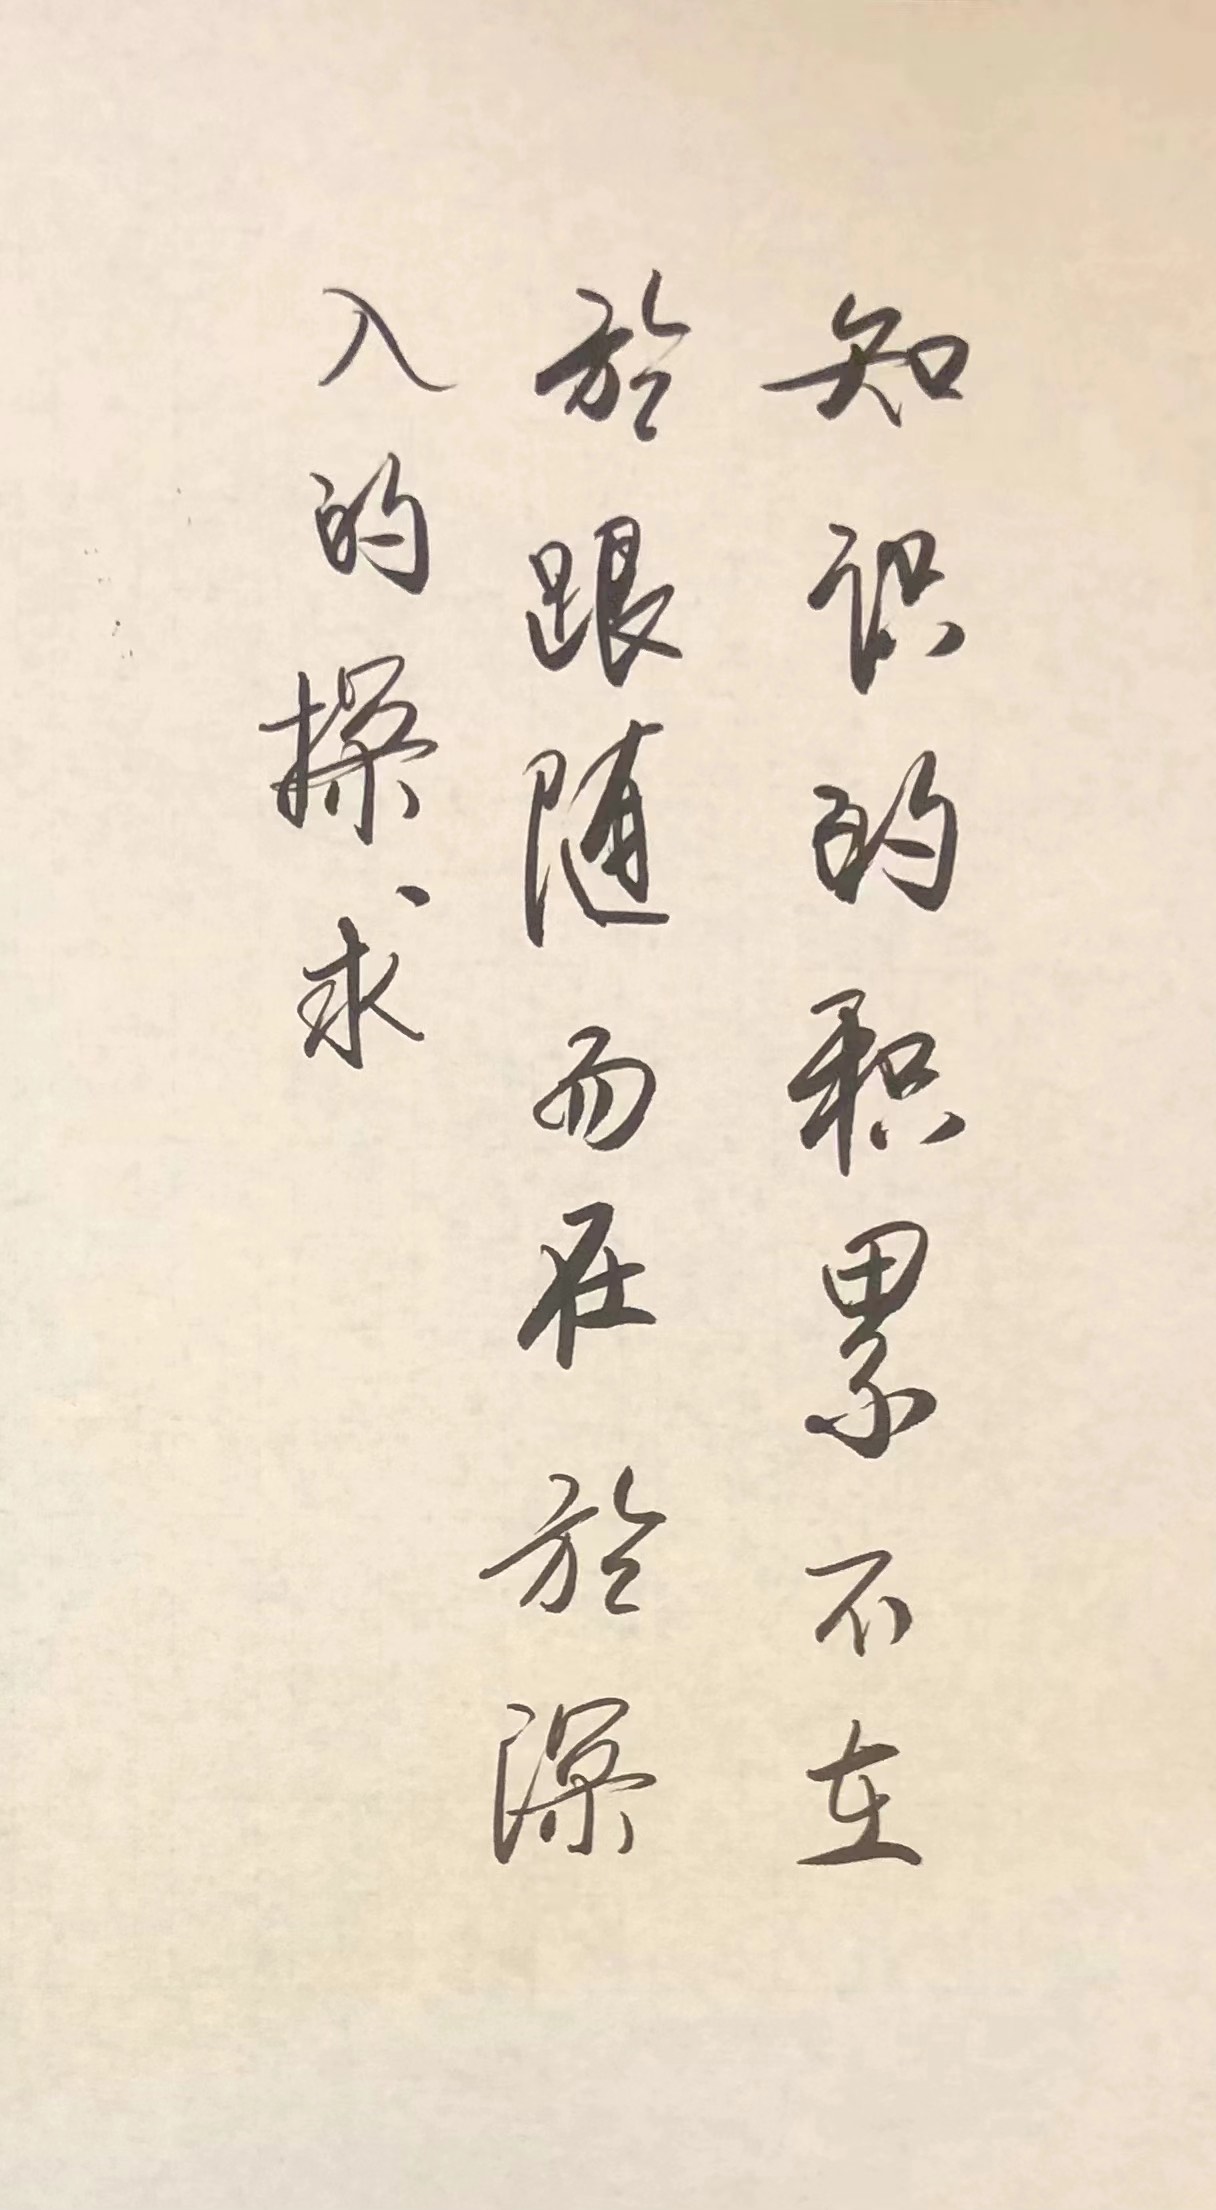 知识的积累不在
於跟随而在於深
入的探求